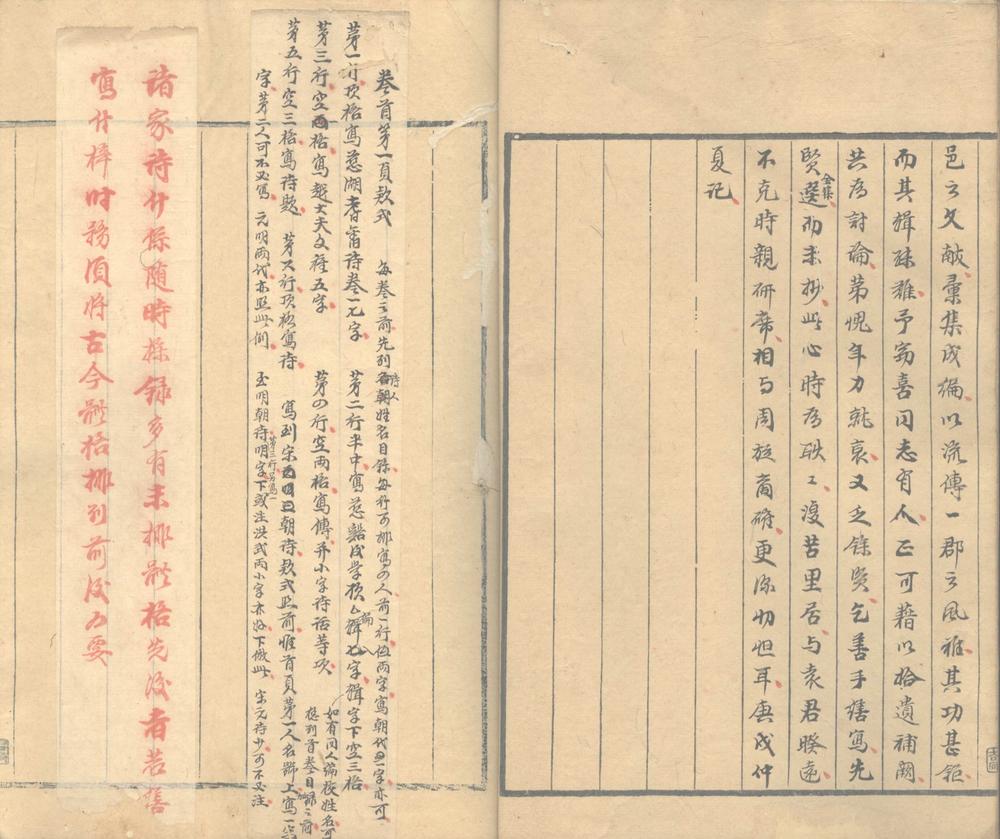 邑之文献彙集成編以流傳一郡之風雅其功甚鉅
而其摉殊難予竊喜同志有人正可藉以拾遺補闕
共為討論第愧年力就衰又乏餘貲乞善手謄寫先
賢全集選而未抄此心時為耿〻復苦里居与袁君暌遠
不克時親研席相与周旋商確更深切怛耳庚戌仲
夏記
卷首第一頁款式 每卷之前先列詩人姓名目錄每行可排寫四人前一行低兩字寫朝代一字亦可
第一行頂格寫慈湖耆舊詩卷一几字 第二行半中寫慈谿後學 編輯 字輯字下空三格
第三行空兩格寫越大夫文種五字 第四行空兩格寫傳并小字詩話等項 如有同人編校姓名可
總列首卷目錄之前
第五行空三格寫詩題 第六行頂格寫詩 寫到宋 朝詩款式照前惟首頁第一人名上寫一宋
字第二人可不必寫 元明兩代亦照此例 至明朝詩明字下或注洪武兩小字亦好下倣此 宋元詩少可不必注
諸家詩什係随時採録多有未排體格先後者若謄
寫什梓时務須将古今體格排列前後為要